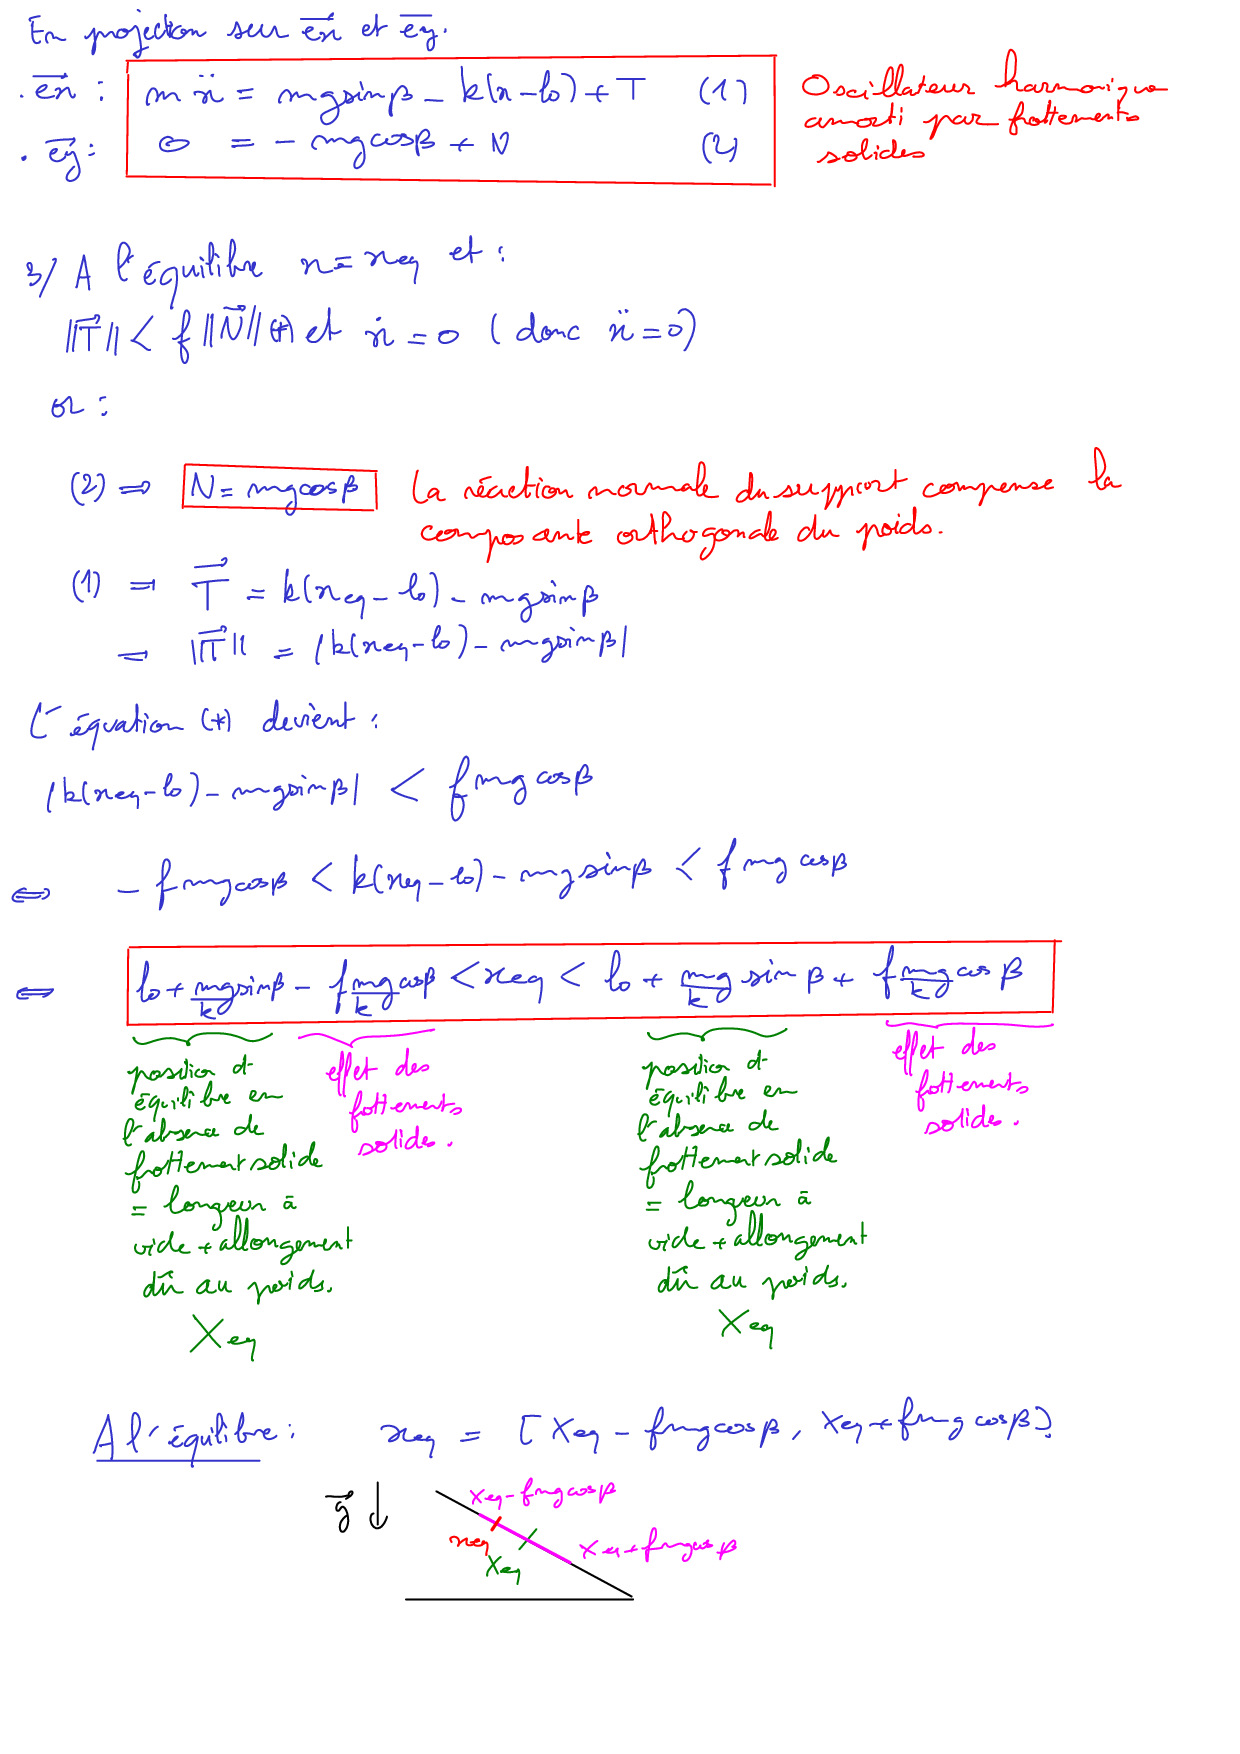 En projection sur $\vec{e_x}$ et $\vec{e_y}$.
. $\vec{e_x}$ : $m\ddot{x} = mg\sin\beta - k(x-l_0) + T$ (1)
. $\vec{e_y}$ : $0 = -mg\cos\beta + N$ (2)
Oscillateur harmonique
amorti par frottements
solides
3/ A l'équilibre $x = x_{eq}$ et :
$\|\vec{T}\| < f\|\vec{N}\|$ (*) et $\dot{x} = 0$ (donc $\ddot{x} = 0$)
or :
(2) ⇒ $N = mg\cos\beta$ La réaction normale du support compense la
composante orthogonale du poids.
(1) ⇒ $\vec{T} = k(x_{eq}-l_0) - mg\sin\beta$
⇒ $\|\vec{T}\| = |k(x_{eq}-l_0) - mg\sin\beta|$
L'équation (*) devient :
$|k(x_{eq}-l_0) - mg\sin\beta| < f mg\cos\beta$
⇔ $-f mg\cos\beta < k(x_{eq}-l_0) - mg\sin\beta < f mg\cos\beta$
⇔ $l_0 + \frac{mg}{k}\sin\beta - f\frac{mg}{k}\cos\beta < x_{eq} < l_0 + \frac{mg}{k}\sin\beta + f\frac{mg}{k}\cos\beta$
position d'
équilibre en
l'absence de
frottement solide
= longueur à
vide + allongement
dû au poids.
$X_{eq}$
effet des
frottements
solides.
position d'
équilibre en
l'absence de
frottement solide
= longueur à
vide + allongement
dû au poids.
$X_{eq}$
effet des
frottements
solides.
A l'équilibre : $x_{eq} = [X_{eq} - fmg\cos\beta, X_{eq} + fmg\cos\beta]$
$\vec{g}$ ↓
$X_{eq} - fmg\cos\beta$
$x_{eq}$
$X_{eq}$
$X_{eq} + fmg\cos\beta$